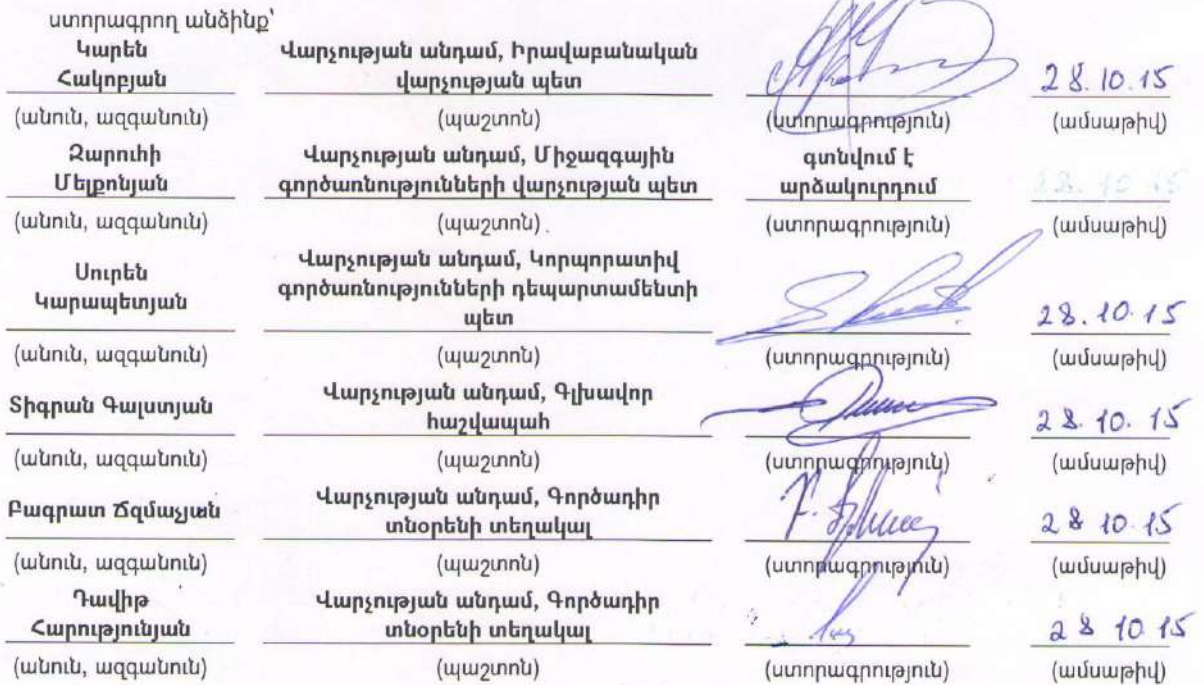 ստորագրող անձինք՝
Կարեն Վարչության անդամ, Իրավաբանական
Հակոբյան վարչության պետ 28.10.15
(անուն, ազգանուն) (պաշտոն) (ստորագրություն) (ամսաթիվ)
Զարուհի Վարչության անդամ, Միջազգային գտնվում է
Մելքոնյան գործառնությունների վարչության պետ արձակուրդում 28.10 15
(անուն, ազգանուն) (պաշտոն) (ստորագրություն) (ամսաթիվ)
Սուրեն Վարչության անդամ, Կորպորատիվ
Կարապետյան գործառնությունների դեպարտամենտի
պետ 28.10.15
(անուն, ազգանուն) (պաշտոն) (ստորագրություն) (ամսաթիվ)
Տիգրան Գալստյան Վարչության անդամ, Գլխավոր
հաշվապահ 28.10.15
(անուն, ազգանուն) (պաշտոն) (ստորագրություն) (ամսաթիվ)
Բագրատ Ճզմաչյան Վարչության անդամ, Գործադիր
տնօրենի տեղակալ 28 10.15
(անուն, ազգանուն) (պաշտոն) (ստորագրություն) (ամսաթիվ)
Դավիթ Վարչության անդամ, Գործադիր
Հարությունյան տնօրենի տեղակալ 28 10 15
(անուն, ազգանուն) (պաշտոն) (ստորագրություն) (ամսաթիվ)